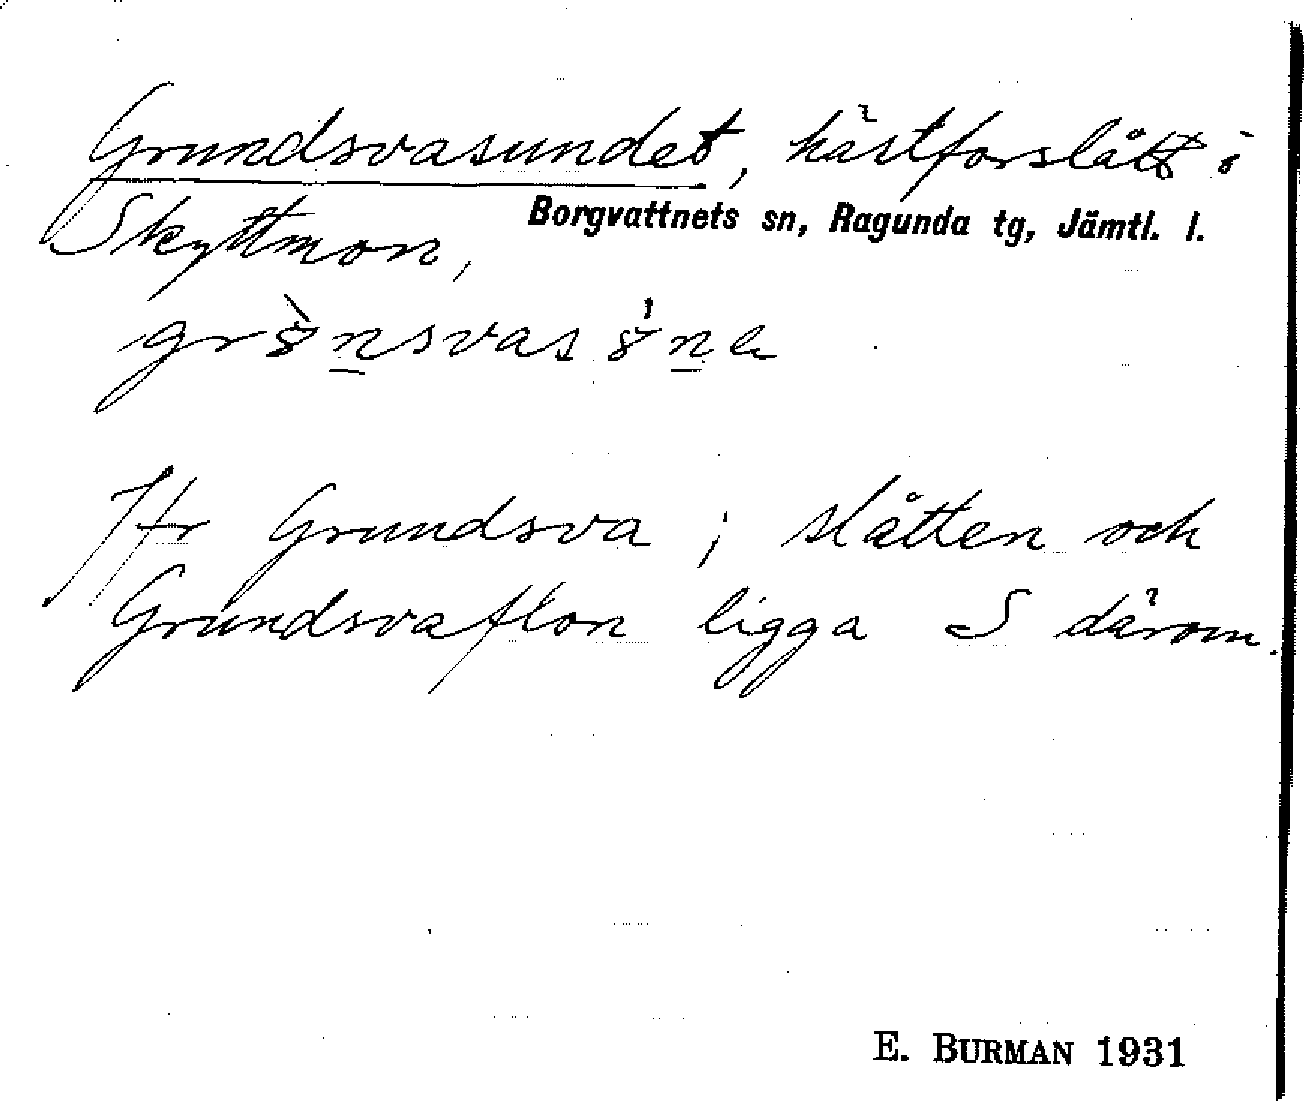 Grundsvasundet, hästforslått i
Borgvattnets sn, Ragunda tg, Jämtl. l.
Skyttmon,
Jfr Grundsva; slåtten och
Grundsvaflon ligga S därom.
E. BURMAN 1931